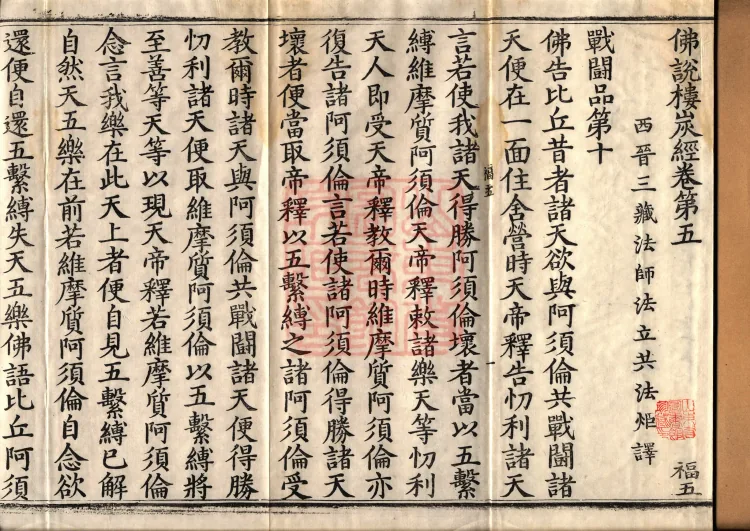 佛說樓炭經卷第五
福五
西晉三藏法師法立共法炬譯
戰鬪品第十
佛告比丘昔者諸天欲與阿須倫共戰鬪諸
天便在一面住舍營時天帝釋告忉利諸天
福五
一
言若使我諸天得勝阿須倫壞者當以五繫
縛維摩質阿須倫天帝釋敕諸樂天等忉利
天人即受天帝釋教爾時維摩質阿須倫亦
復告諸阿須倫言若使諸阿須倫得勝諸天
壞者便當取帝釋以五繫縛之諸阿須倫受
教爾時諸天與阿須倫共戰鬪諸天便得勝
忉利諸天便取維摩質阿須倫以五繫縛將
至善等天等以現天帝釋若維摩質阿須倫
念言我樂在此天上者便自見五繫縛已解
自然天五樂在前若維摩質阿須倫自念欲
還便自還五繫縛失天五樂佛語比丘阿須